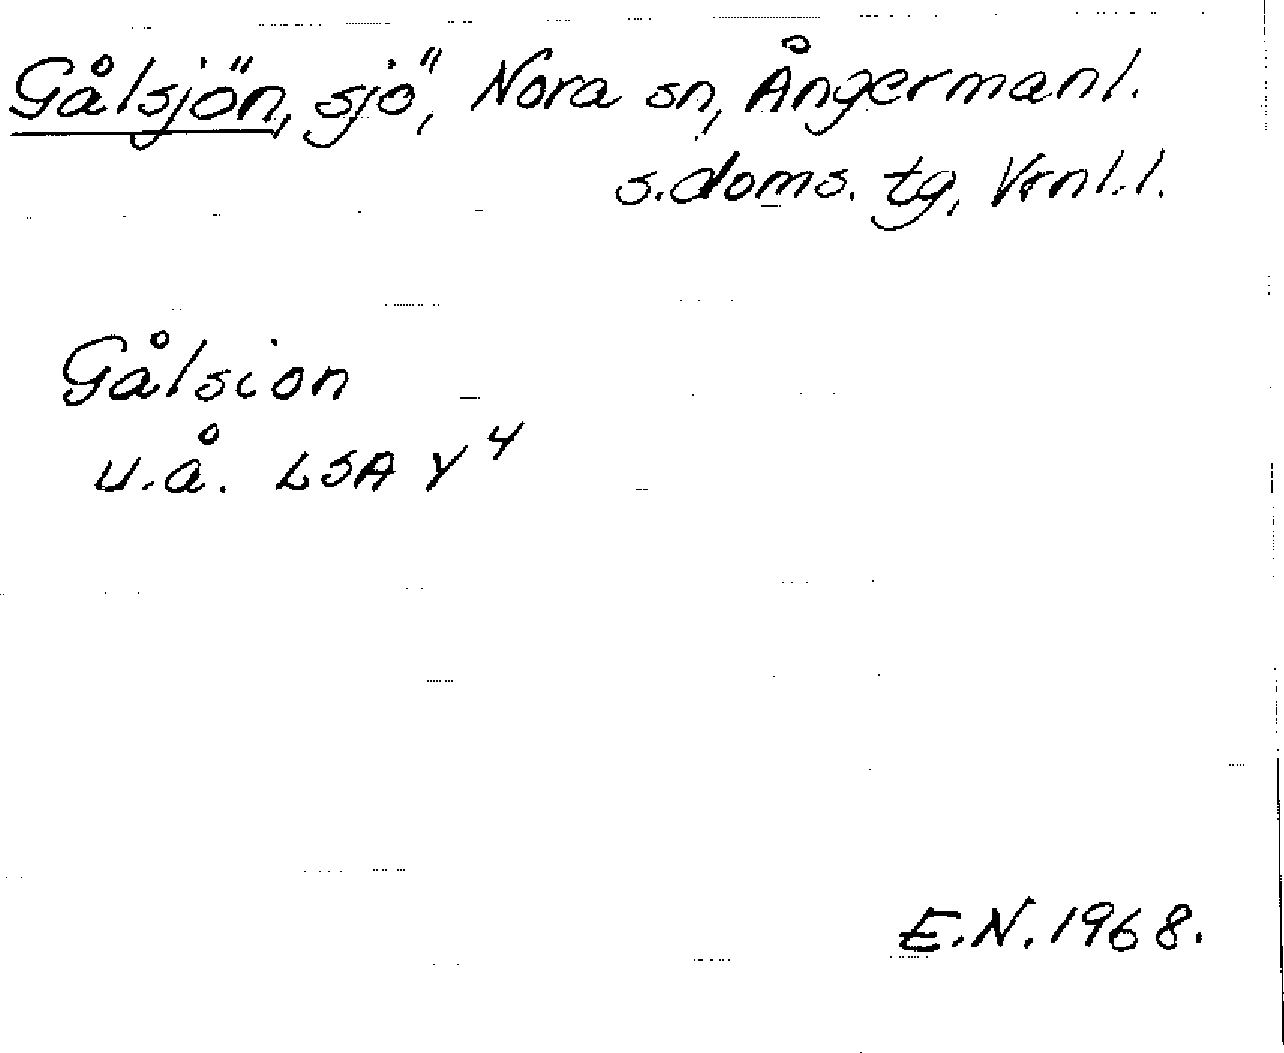 Gålsjön, sjö, Nora sn, Ångermanl.
s.doms. tg, Vrnl.l.
Gålsion
u.å. LSA Y 4
E.N. 1968.